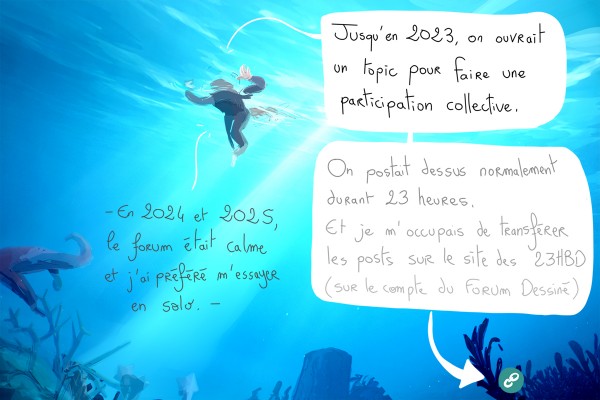 Jusqu'en 2023, on ouvrait
un topic pour faire une
participation collective.
On postait dessus normalement
durant 23 heures.
Et je m'occupais de transférer
les posts sur le site des 23HBD
(sur le compte du Forum Dessiné)
- En 2024 et 2025,
le forum était calme
et j'ai préféré m'essayer
en solo. -